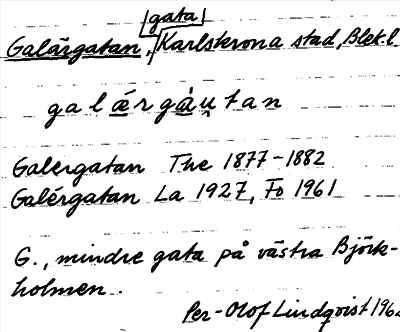 gata
Galärgatan, Karlskrona stad, Blek. l.
galǽrgàu̯tan
Galergatan The 1877-1882
Galérgatan La 1927, Fo 1961
G., mindre gata på västra Björk-
holmen.
Per-Olof Lindqvist